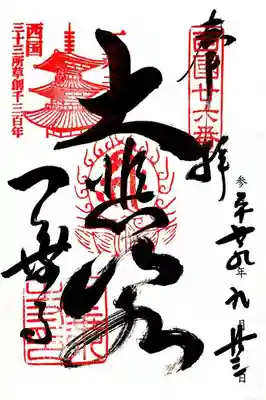 奉拝
西国廿六番
参平成廿九年九月廿三日
大悲閣
西国
三十三所草創千三百年
一乗寺